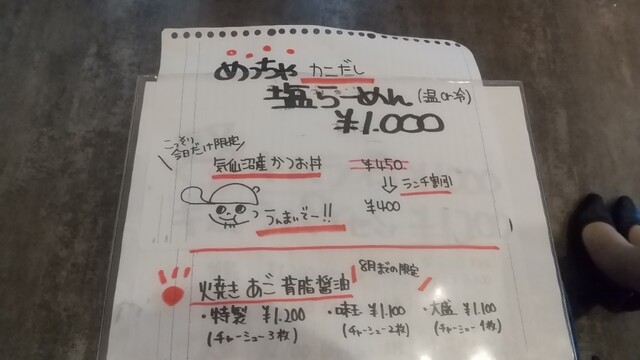 めっちゃ カニだし
塩らーめん (温or冷)
¥1.000
こっそり
今日だけ限定
気仙沼産 かつお丼 ¥450
ランチ割引
¥400
うんまいでー!!
焼き あご 背脂醤油 8月までの限定
・特製 ¥1.200 ・味玉 ¥1.100 ・大盛 ¥1.100
(チャーシュー3枚) (チャーシュー2枚) (チャーシュー1枚)